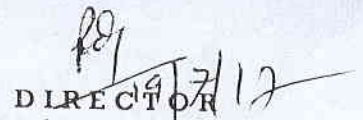 19/7/12
DIRECTOR